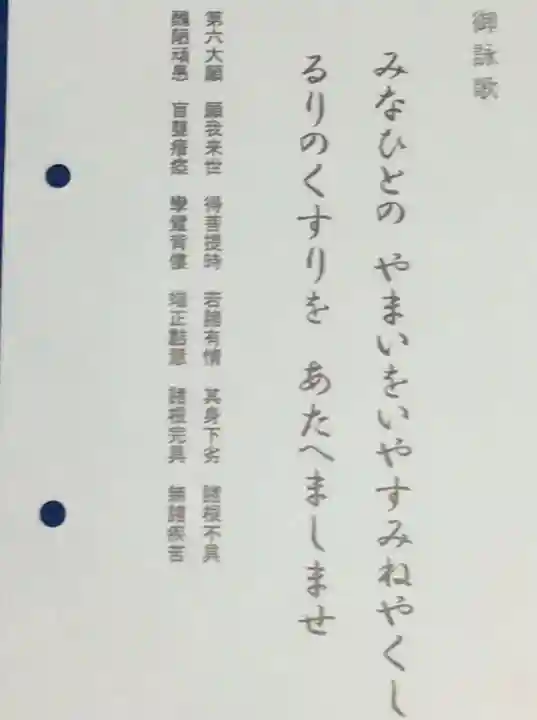 御詠歌
みなひとの やまいをいやすみねやくし
るりのくすりを あたへましませ
第六大願 願我来世 得菩提時 若諸有情 其身下劣 諸根不具
醜陋頑愚 盲聾瘖瘂 攣躄背僂 端正黠慧 諸根完具 無諸疾苦